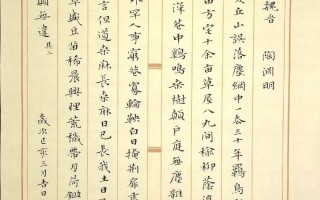 魏晉 陶淵明
丘山誤落塵網中一去三十年羈鳥
方宅十餘畝草屋八九間榆柳蔭
深巷中鷄鳴桑樹顛戶庭無塵雜
罕人事窮巷寡輪鞅白日掩荆扉
言但道桑麻長桑麻日已長我土日已
草盛豆苗稀晨興理荒穢帶月荷鋤
願無違 其三
歲次 三月吉日